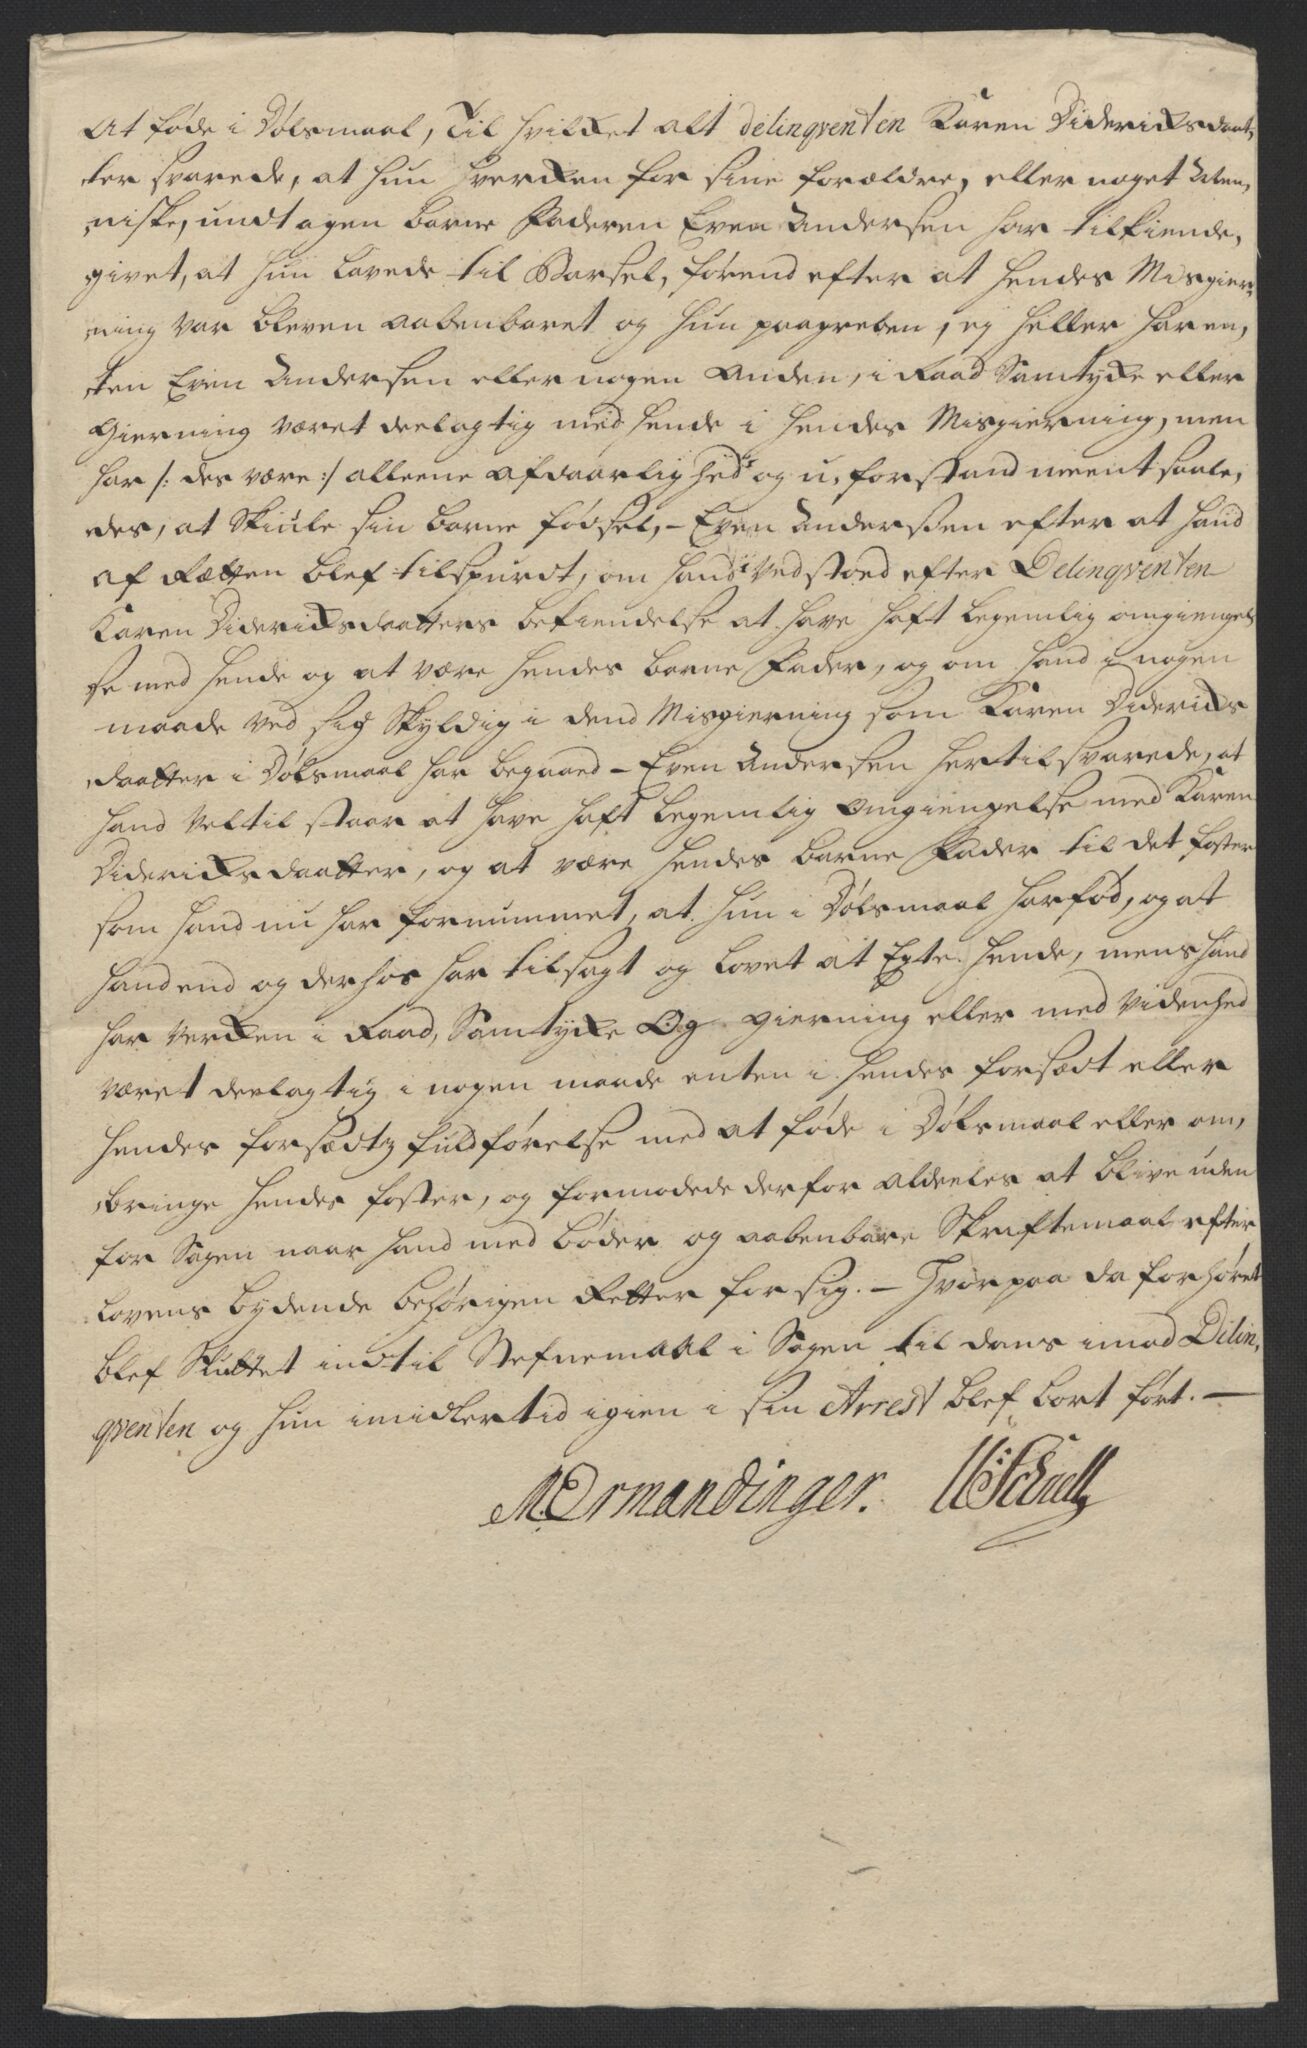 At føde i Dølsmaal, Til hvilket alt delinqventen Karen Didericksdaat,
ter svarede, at hun hvercken for sine forældre, eller noget Men,
niske, undtagen barne Faderen Even Andersen har tilkiende,
givet, at hun lavede til Barsel, førend efter at hendes Misgier,
ning var bleven aabenbaret og hun paagreben, ej heller har en,
ten Even Andersen eller nogen Anden, i Raad Samtycke eller
Gierning været deelagtig med hende i hendes Misgierning, men
har /: des være :/ alleene af daarlighed og u, forstand meent saale,
des, at Skiule sin barne fødsel, - Even Andersen efter at hand
af Rætten blef tilspurdt, om hand vedstoed efter Delinqventen
Karen Didericksdaatters bekiendelse at have haft legemlig omgiengel,
se med hende og at være hendes barne Fader, og om hand i nogen
maade ved sig Skyldig i dend Misgierning som Karen Didericks
daatter i Dølsmaal har begaaed - Even Andersen hertil svarede, at
hand vel til staar at have haft legemlig Omgiengelse med Karen
Didericksdaatter, og at være hendes barne Fader til det foster
som hand nu har fornummet, at hun i Dølsmaal har fød, og at
hand end og derhos har tilsagt og lovet at Egte hende, mens hand
har vercken i Raad, Samtycke Og gierning eller med videnhed
været deelagtig i nogen maade enten i hendes forsædt eller
hendes forsædtz fuldførelse med at føde i Dølsmaal eller om,
bringe hendes foster, og formodede derfor aldeeles at blive uden
for Sagen naar hand med bøder og aabenbare Skriftemaal efter
lovens bydende behørigen Retter for sig. - Hvorpaa da forhøret
blef Sluttet indtil Stefnemaal i Sagen til dans imod Delin,
qventen og hun imidlertid igien i sin Arrest blef bort ført. -
M. Ormandinger.